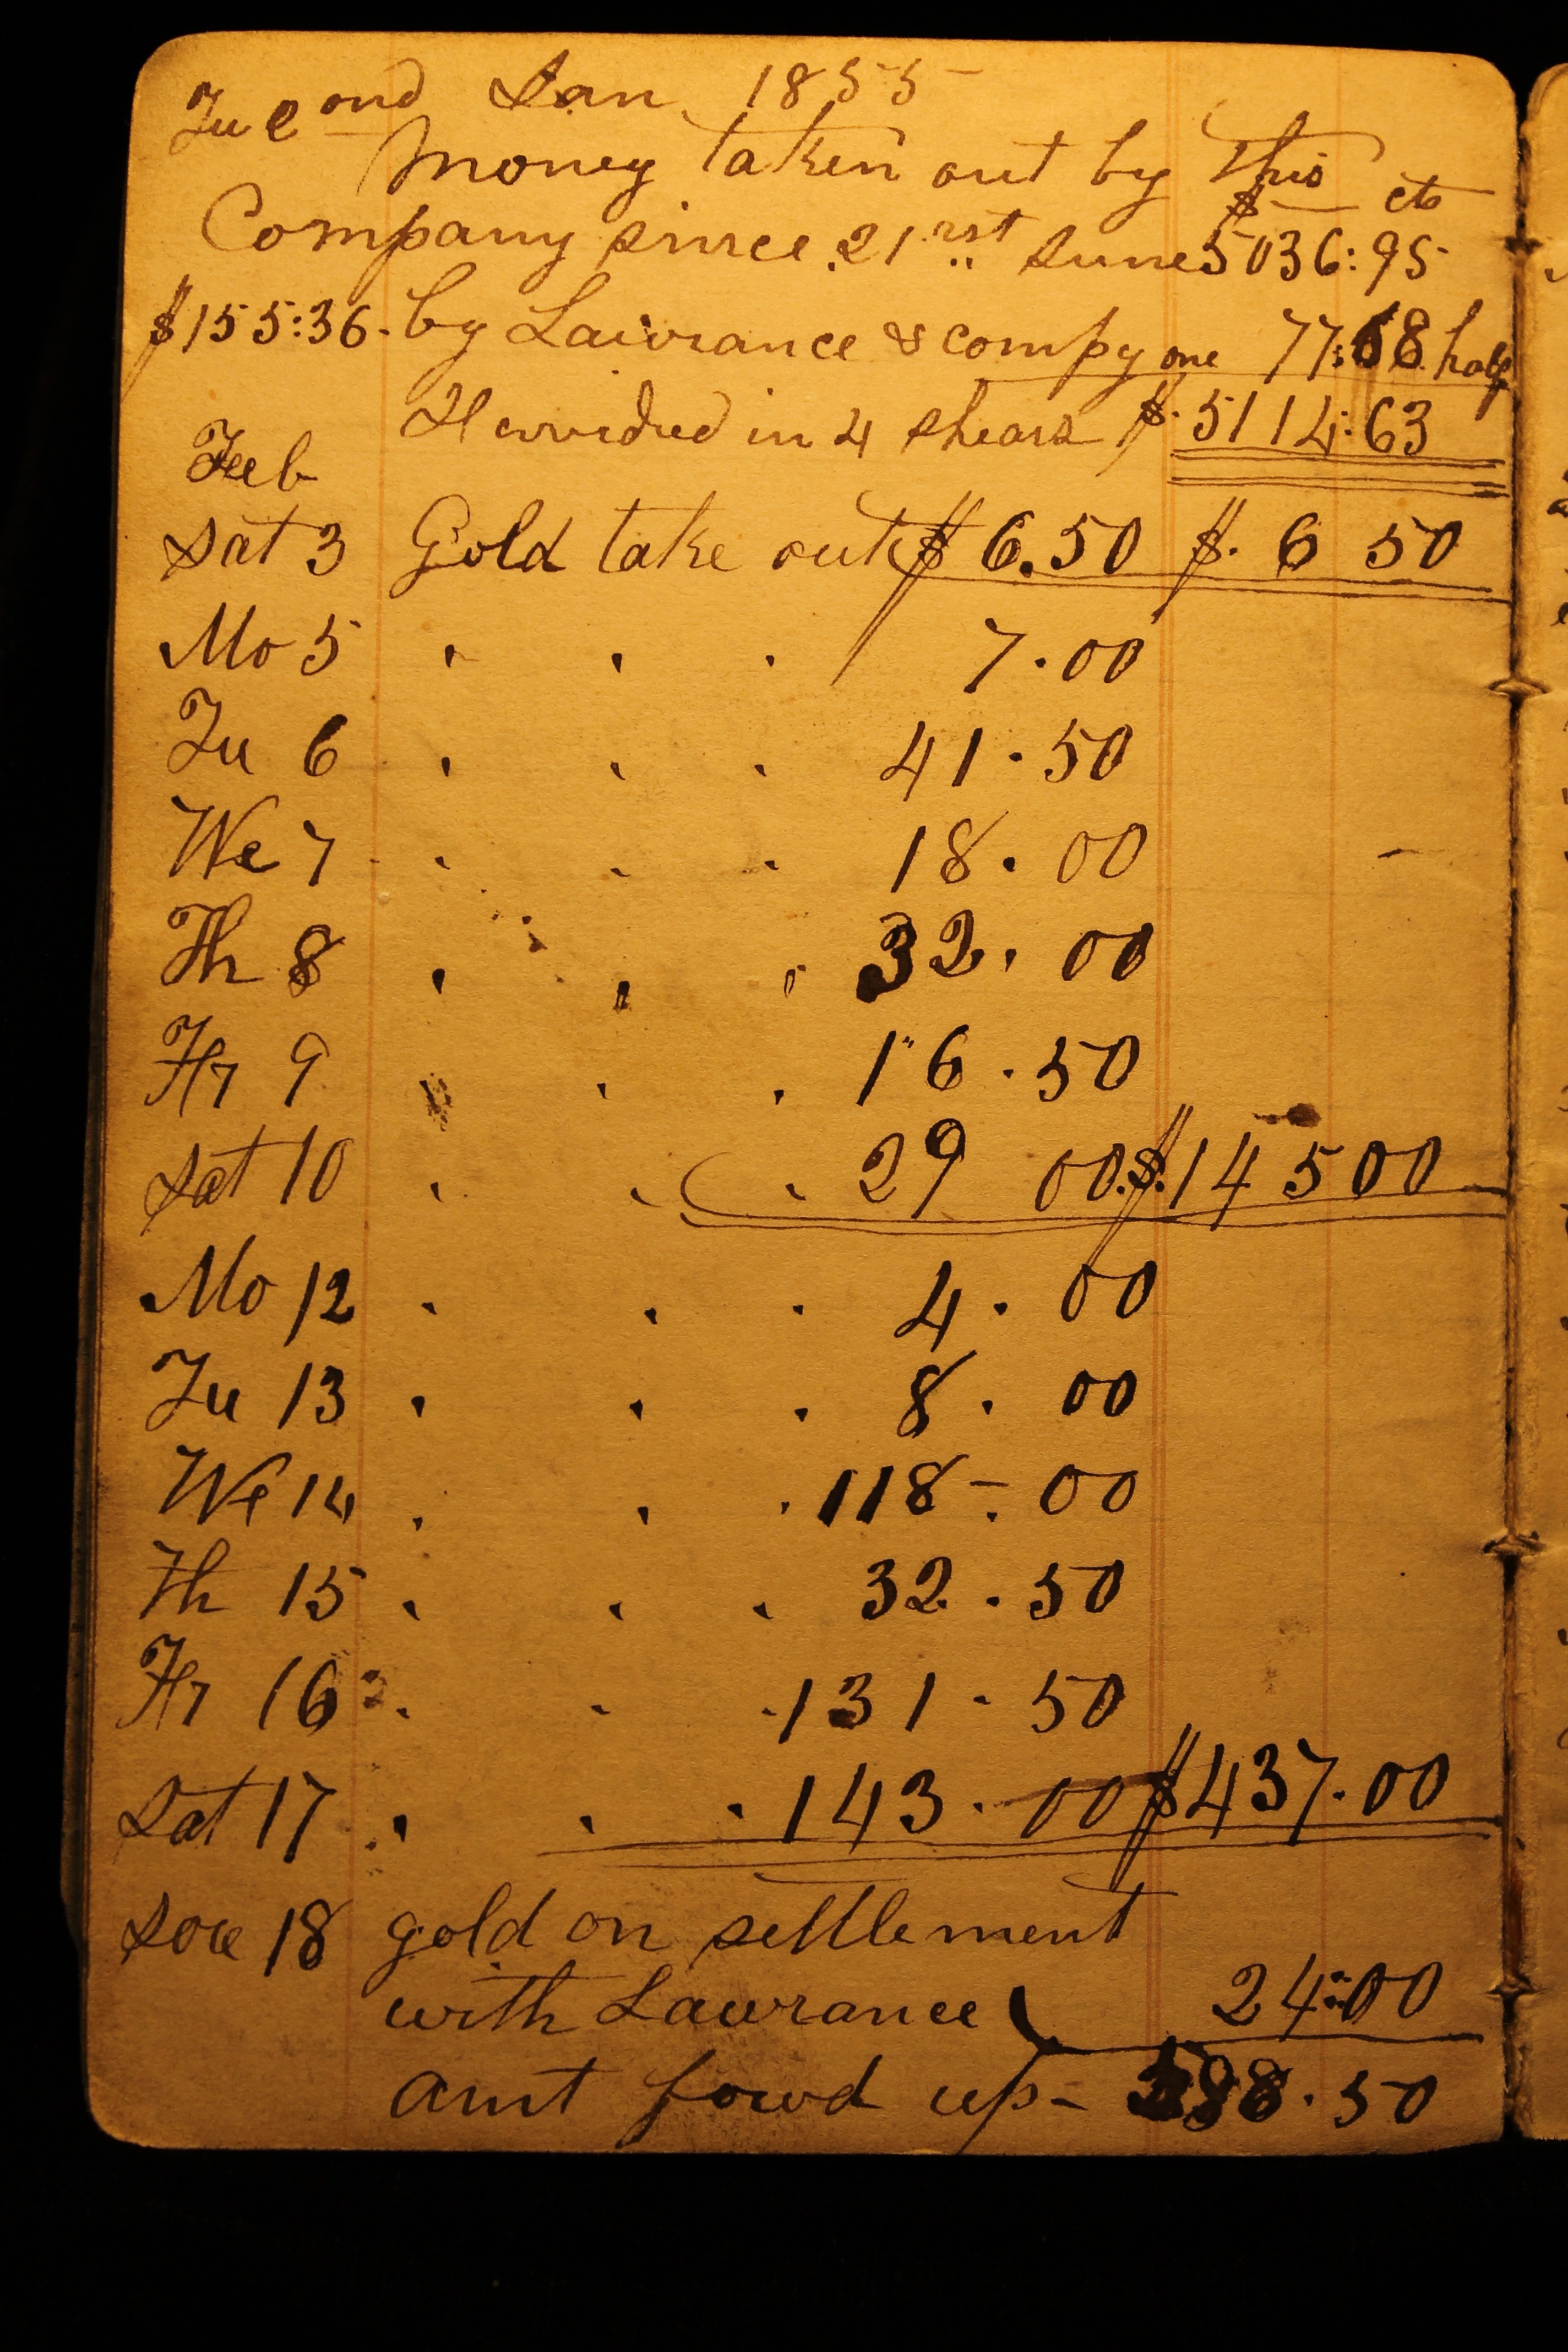 Tu 2ond Jan 1855
Money taken out by this
$ cts
Company since 21rst June 5036:95
$155:36. by Lawrance & compy one 77:68 half
in 4 shears $ 5114:63
Feb
Sat 3 Gold take out $ 6.50 $. 6 50
Mo 5 " " " 7.00
Tu 6 " " " 41.50
We 7 " " " 18.00
Th 8 " " " 32.00
Fr 9 " " 16.50
Sat 10 " " " 29 00. $.145 00
Mo 12 " " " 4.00
Tu 13 " " " 8.00
We 14 " " " 118-.00
Th 15 " " " 32.50
Fr 16 " " " 131.50
Sat 17 " " " 143.00 $437.00
18 gold on settlement
with Lawrance ( 24:00
amt fowd up - 588.50